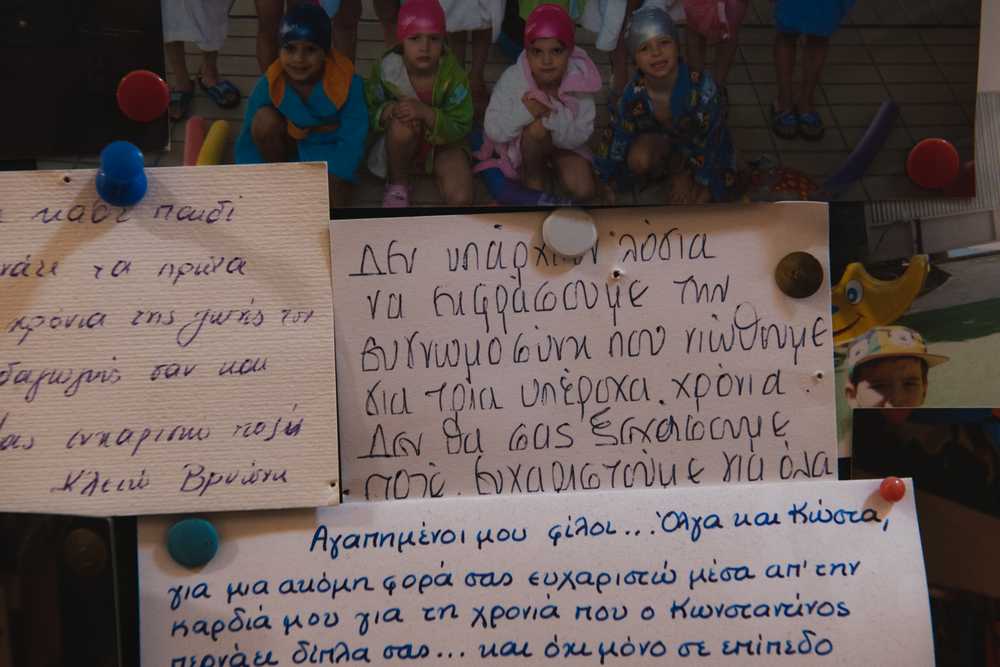 κάθε παιδί
τα πρώτα
χρόνια της ζωής του
σαν και
ευχαριστώ πολύ
Κλειώ
Δεν υπάρχουν λόγια
να εκφράσουμε την
ευγνωμοσύνη που νιώθουμε
για τρία υπέροχα χρόνια.
Δεν θα σας ξεχάσουμε
ποτέ. Ευχαριστούμε για όλα
Αγαπημένοι μου φίλοι... Όλγα και Κώστα,
για μια ακόμη φορά σας ευχαριστώ μέσα απ' την
καρδιά μου για τη χρονιά που ο Κωνσταντίνος
περνάει δίπλα σας... και όχι μόνο σε επίπεδο